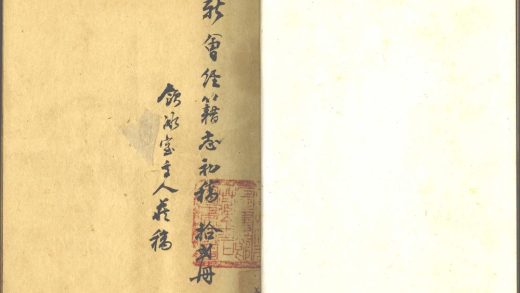 新會經籍志初稿 拾冊
飲冰室主人藏稿